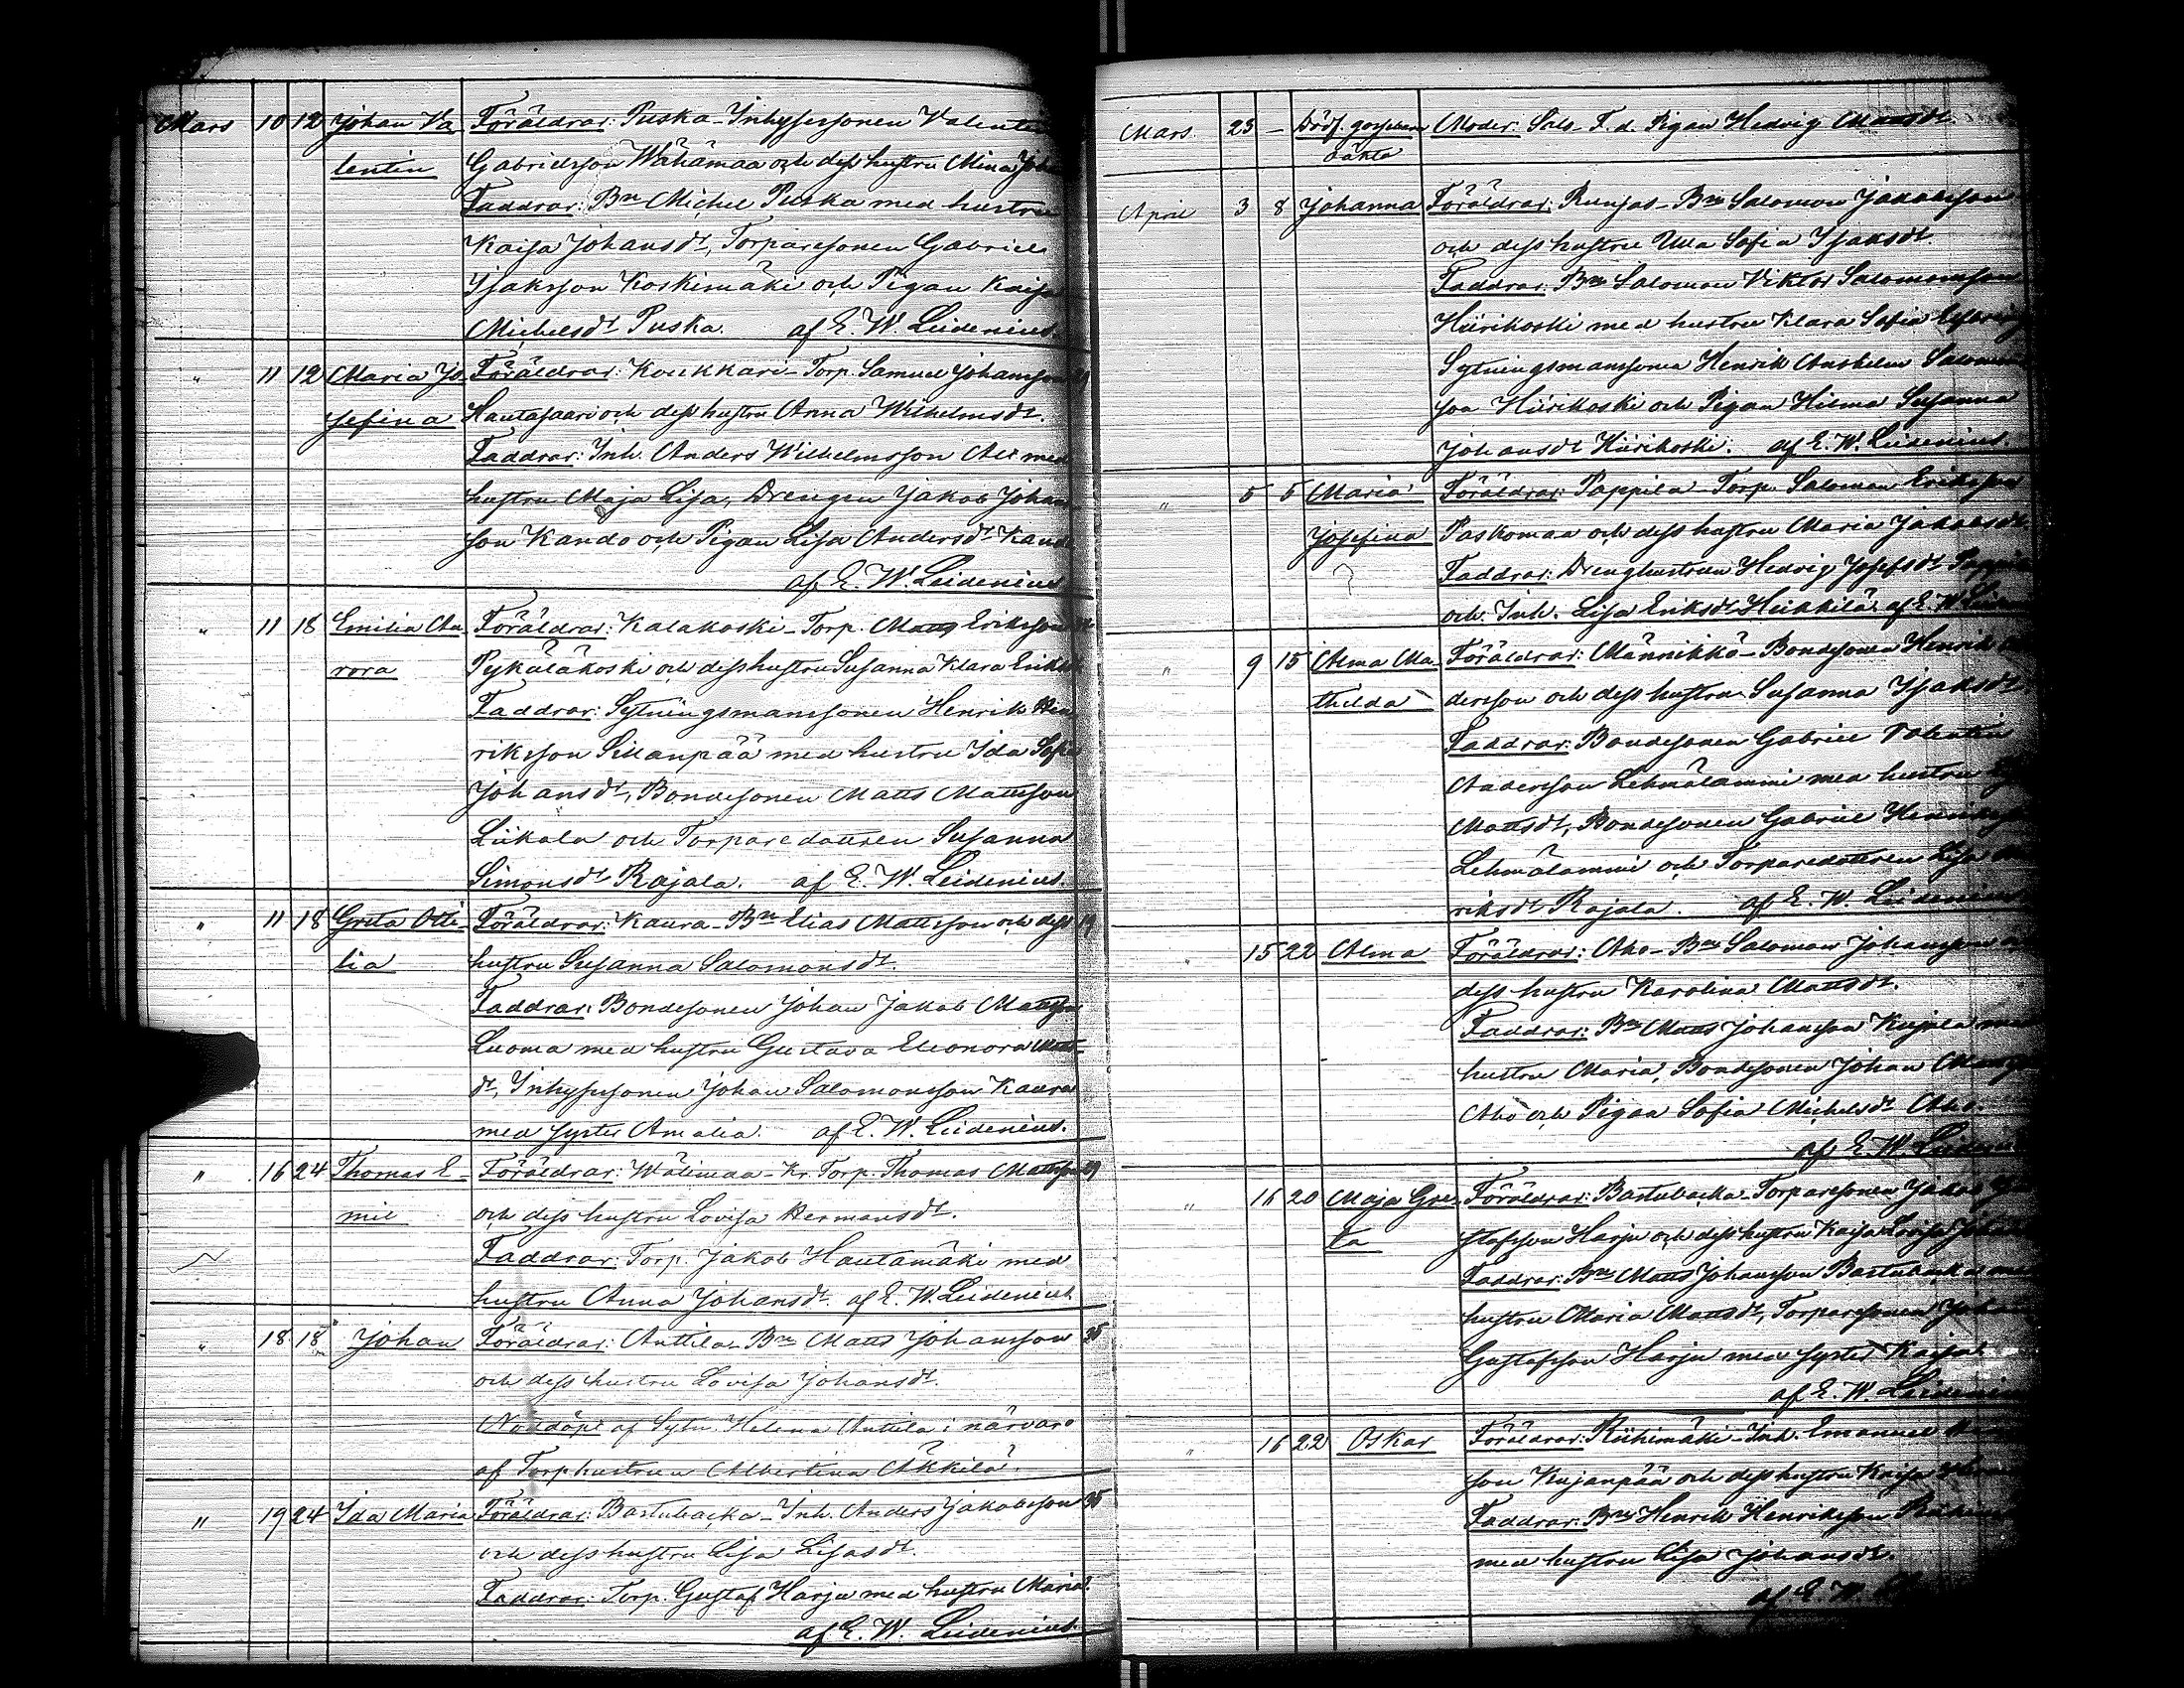 Mars 10 12 Johan Va Föräldrar: Puska-Inhysessonen Valentin
lentin Gabrielsson Wähämaa och dess hustru Mina Joh
Faddrar: Bn Michel Puska med hustru
Kaisa Johansdr, Torparesonen Gabriel
Isaksson Koskimäki och Pigan Kaisa
Michelsdr Puska. af E. W. Leidenius.
" 11 12 Maria Jo- Föräldrar: Koukkari-Torp. Samuel Johansson
sefina Hautasaari och dess hustru Anna Wilhelmsdr.
Faddrar: Inh. Anders Wilhelmsson Ali med
hustru Maja Lisa, Drengen Jakob Johans
son Kando och Pigan Lisa Andersdr Kando
af E. W. Leidenius
" 11 18 Emilia Au- Föräldrar: Kalakoski-Torp. Matts Eriksson
rora Pykäläkoski och dess hustru Susanna Klara Eriksdr
Faddrar: Sytningsmanssonen Henrik Hen
riksson Sillanpää med hustru Ida Sofia
Johansdr, Bondesonen Matts Mattsson
Liikala och Torparedottren Susanna
Simonsdr Rajala. af E. W. Leidenius.
" 11 18 Greta Oti- Föräldrar: Kaura-Bn Elias Mattsson och dess 19
lia hustru Susanna Salomonsdr.
Faddrar: Bondesonen Johan Jakob Mattsson
Luoma med hustru Gustava Eleonora Matts-
dr, Inhysesonen Johan Salomonsson Kaura
med syster Amalia. af E. W. Leidenius.
" 16 24 Thomas E- Föräldrar: Wälimaa-Kr. Torp. Thomas Mattsson 29
mil och dess hustru Lovisa Hermansdr.
Faddrar: Torp. Jakob Hautamäki med
hustru Anna Johansdr. af E. W. Leidenius.
" 18 18 Johan Föräldrar: Anttila-Bn Matts Johansson 35
och dess hustru Lovisa Johansdr.
Nöddöpt af Sytn. Helena Anttila i närvaro
af Torp hustrun Albertina Äkkilä.
" 19 24 Ida Maria Föräldrar: Bastubacka-Inh. Anders Jakobsson 35
och dess hustru Lisa Lisasdr.
Faddrar: Torp. Gustaf Harju med hustru Maria.
af E. W. Leidenius.
Mars. 23 - Dödf. gosse Moder: Salo-T.d. Pigan Hedvig Mattsdr
oäkta
April 3 8 Johanna Föräldrar: Runjas-Bn Salomon Jakobsson
och dess hustru Ulla Sofia Isaksdr.
Faddrar: Bn Salomon Viktor Salomonsson
Hiirikoski med hustru Klara Sofia
Sytningsmanssonen Henrik Anshelm Salomons
son Hiirikoski och Pigan Hilma Susanna
Johansdr Hiirikoski. af E. W. Leidenius.
" 5 5 Maria Föräldrar: Pappila-Torp. Salomon Eriksson
Josefina Paskomaa och dess hustru Maria Jakobsdr
Faddrar: Drenghustrun Hedvig Josefsdr Pappila
och Inh. Lisa Eriksdr Heikkilä. af E. W. Leidenius
" 9 15 Alma Ma- Föräldrar: Männikkö-Bondesonen Henrik An
thilda dersson och dess hustru Susanna Isaksdr
Faddrar: Bondesonen Gabriel Valentin
Andersson Lehmälammi med hustru
Mattsdr, Bondesonen Gabriel Henriksson
Lehmälammi och Torparedottren Lisa
riksdr Rajala. af E. W. Leidenius
" 15 22 Alma Föräldrar: Aho-Bn Salomon Johansson och
dess hustru Karolina Mattsdr.
Faddrar: Bn Matts Johansson Kujala med
hustru Maria, Bondesonen Johan
Aho och Pigan Sofia Michelsdr Aho.
af E. W. Leidenius
" 16 20 Maja Gre- Föräldrar: Bastubacka-Torparesonen Jakob Gu
ta stafsson Harju och dess hustru Kaisa Lovisa
Faddrar: Bn Matts Johansson Bastubacka med
hustru Maria Mattsdr, Torparesonen Johan
Gustafsson Harju med syster Kaisa.
af E. W. Leidenius
" 16 22 Oskar Föräldrar: Riihimäki-Inh. Emanuel
son Kujanpää och dess hustru Kaisa
Faddrar: Bn Henrik Henriksson Riihimäki
med hustru Lisa Johansdr.
af E. W.